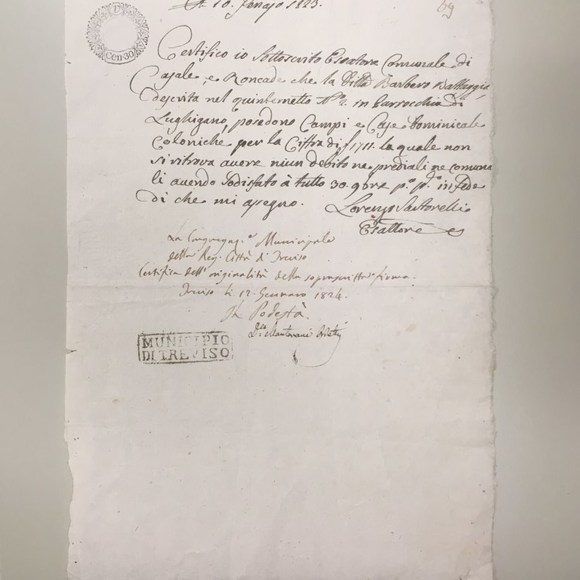 Lì 10. Genajo 1823.
69
Cen. 30
Certifico io Sottoscrito Esatore Comunale di
Casale, e Roncade che la Ditta Barbero Battagia
descrita nel quinternetto in Parrocchia di
Lughignano, possedono Campi e Case Dominicale
Coloniche per la Ciffra di 1711. la quale non
si ritrova avere niun debito ne prediali, ne comuna
li avendo sodisfato à tutto 30. in fede
di che mi asegno.
Lorenzo Sartorelli
Esattore
La Congregaz.e Municipale
della Reg. Città di Treviso
Certifica dell'originalità della soprascritta firma
Treviso li 12. Gennaro 1824.
Il Podestà
MUNICIPIO
DI TREVISO